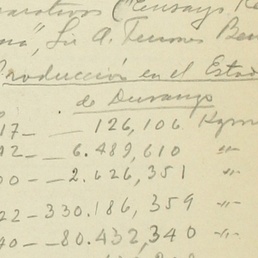 arativos ("Ensayo Re
", Sir A. Tennes Ben
Producción en el Estad
de Durango
17 — — 126,106 Kgm
12 — — 6.489,610 "
00 — — 2.626,351 "
22 — 330.186,359 "
40 — — 80.432,340 "